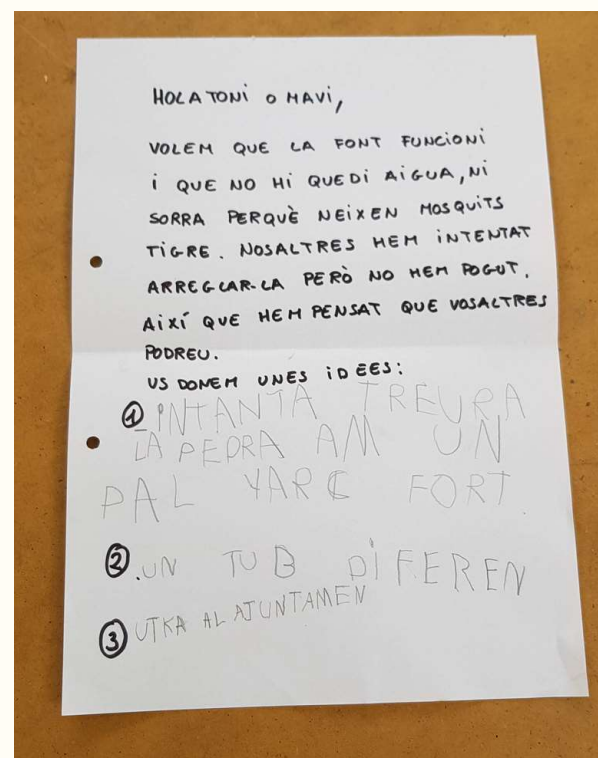 HOLA TONI O MAVI,
VOLEM QUE LA FONT FUNCIONI
I QUE NO HI QUEDI AIGUA, NI
SORRA PERQUÈ NEIXEN MOSQUITS
TIGRE. NOSALTRES HEM INTENTAT
ARREGLAR-LA PERÒ NO HEM POGUT.
AIXÍ QUE HEM PENSAT QUE VOSALTRES
PODREU.
US DONEM UNES IDEES:
1 INTANTA TREURA
LA PEDRA AM UN
PAL YARC FORT.
2. UN TUB DIFEREN
3 AL AJUNTAMEN